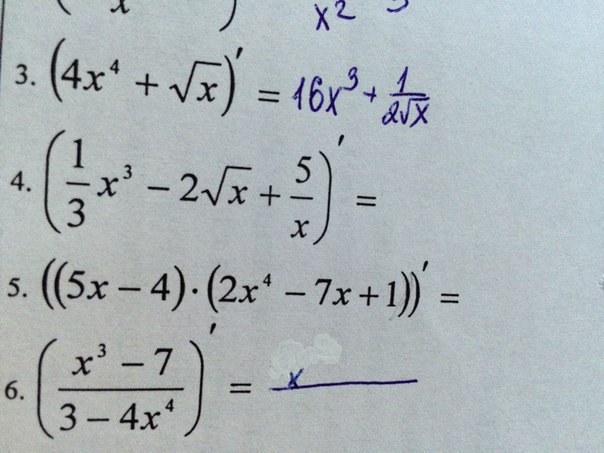 x² 
3. (4x⁴ + √x)′ = 16x³ + 1/(2√x)
4. (1/3 x³ − 2√x + 5/x)′ =
5. ((5x − 4)·(2x⁴ − 7x + 1))′ =
6. ((x³ − 7)/(3 − 4x⁴))′ = x